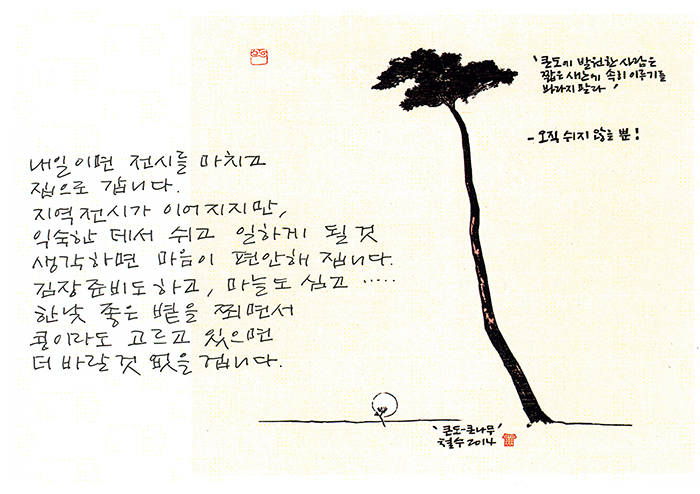 내일이면 전시를 마치고
집으로 갑니다.
지역전시가 이어지지만,
익숙한 데서 쉬고 일하게 될 것
생각하면 마음이 편안해 집니다.
김장준비도하고, 마늘도 심고 .....
한낮 좋은 볕을 쬐면서
콩이라도 고르고 있으면
더 바랄 것 없을 겁니다.
'큰도에 발원한 사람은
짧은 새는에 속히 이루기를
바라지 말라'
- 오직 쉬지 않을 뿐!
'큰도-큰나무'
철수 2014